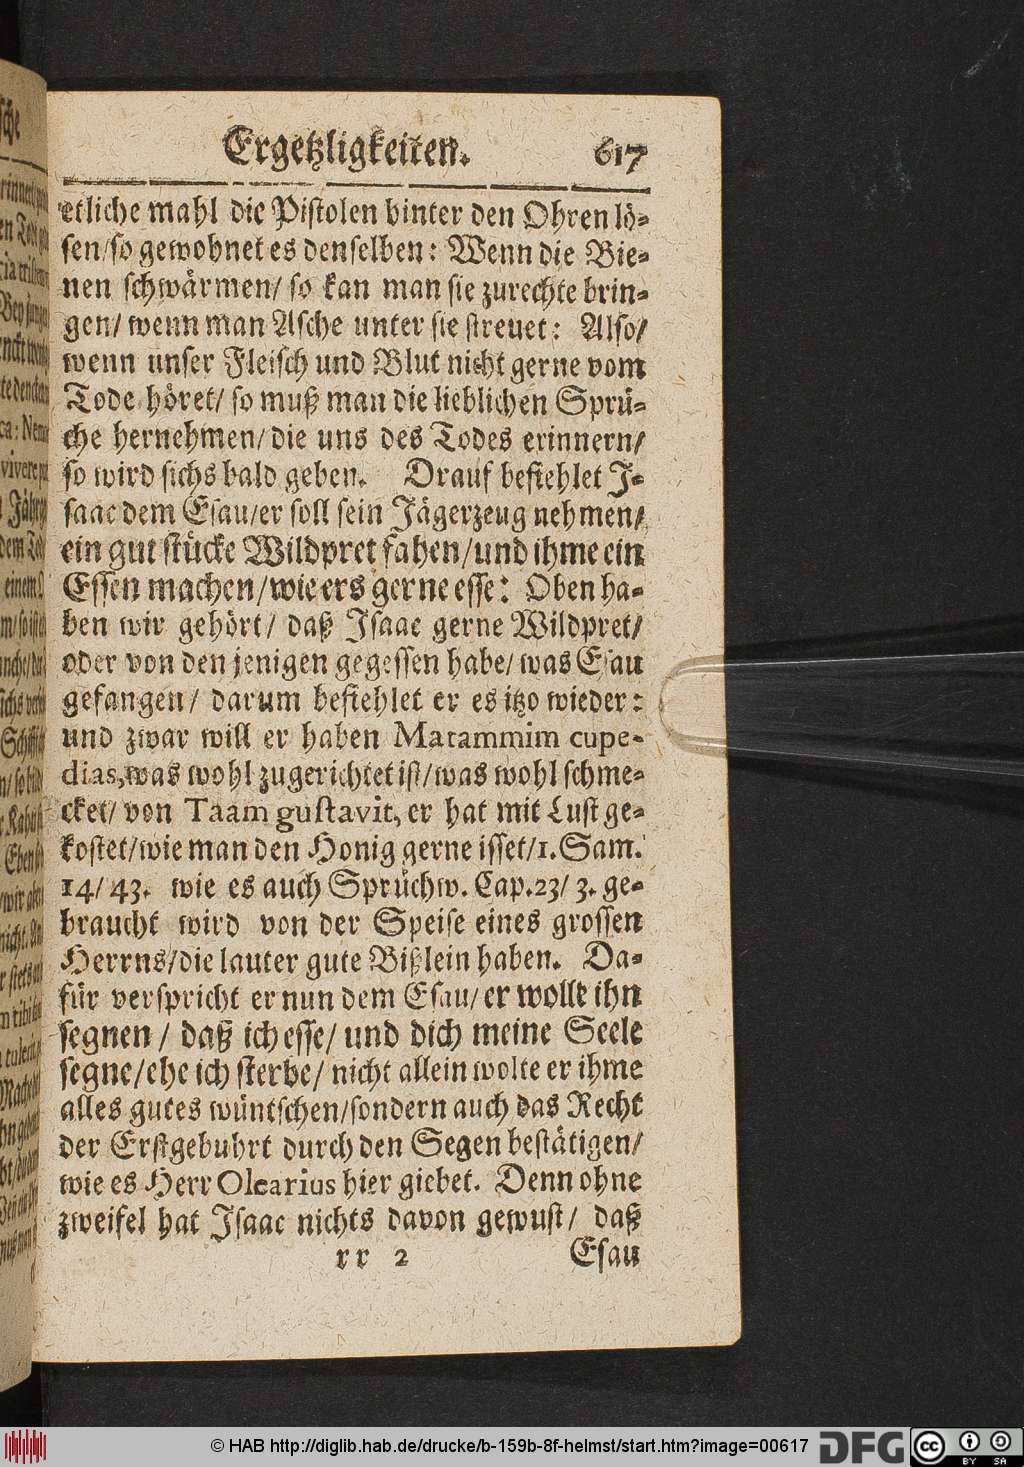 Ergetzligkeiten. 617
etliche mahl die Pistolen hinter den Ohren lö-
sen/so gewohnet es denselben: Wenn die Bie-
nen schwärmen/ so kan man sie zurechte brin-
gen/ wenn man Asche unter sie streuet: Also/
wenn unser Fleisch und Blut nicht gerne vom
Tode höret/ so muß man die lieblichen Sprü-
che hernehmen/ die uns des Todes erinnern/
so wird sichs bald geben. Drauf befiehlet J-
saac dem Esau/er soll sein Jägerzeug nehmen/
ein gut stücke Wildpret fahen/und ihme ein
Essen machen/wie ers gerne esse: Oben ha-
ben wir gehört/ daß Jsaac gerne Wildpret/
oder von den jenigen gegessen habe/ was Esau
gefangen/ darum befiehlet er es itzo wieder:
und zwar will er haben Matammim cupe-
dias, was wohl zugerichtet ist/was wohl schme-
cket/ von Taam gustavit, er hat mit Lust ge-
kostet/wie man den Honig gerne isset/1. Sam.
14/ 43. wie es auch Sprüchw. Cap. 23/ 3. ge-
braucht wird von der Speise eines grossen
Herrns/die lauter gute Bißlein haben. Da-
für verspricht er nun dem Esau/ er wolle ihn
segnen / daß ich esse/ und dich meine Seele
segne/ehe ich sterbe/ nicht allein wolte er ihme
alles gutes wüntschen/sondern auch das Recht
der Erstgebuhrt durch den Segen bestätigen/
wie es Herr Olearius hier giebet. Denn ohne
zweifel hat Jsaac nichts davon gewust/ daß
rr 2 Esau
© HAB http://diglib.hab.de/drucke/b-159b-8f-helmst/start.htm?image=00617 DFG cc BY SA